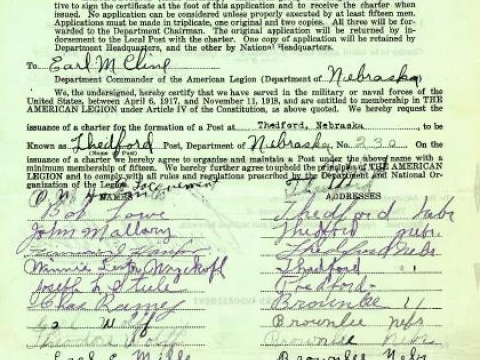 tive to sign the certificate at the foot of this application and to receive the charter when
issued. No application can be considered unless properly executed by at least fifteen men.
Applications must be made in triplicate, one original and two copies. All three will be for-
warded to the Department Chairman. The original application will be returned by in-
dorsement to the Local Post with the charter. One copy of application will be retained by
Department Headquarters, and the other by National Headquarters.
To Earl M Cline
Department Commander of the American Legion (Department of Nebraska)
We, the undersigned, hereby certify that we have served in the military or naval forces of the
United States, between April 6, 1917, and November 11, 1918, and are entitled to membership in THE
AMERICAN LEGION under Article IV of the Constitution, as above quoted. We hereby request the
issuance of a charter for the formation of a Post at Thedford, Nebraska, to be
Known as Thedford Post, Department of Nebraska No. 230 On the
(Name of Post)
issuance of a charter we hereby agree to organise and maintain a Post under the above name with a
minimum membership of fifteen. We further agree to uphold the principles of THE AMERICAN
LEGION and to comply with all rules and regulations prescribed by the Department and National Or-
ganization of the Legion
NAMES ADDRESSES
Bob Lowe Thedford Nebr
John Mallory Thedford Nebr
Thedford Nebr
Minnie Thedford "
Joseph L Steele Thedford
Chas Raney Brownlee "
Wolf Brownlee Nebr
Brownlee Nebr
Brownlee Nebr